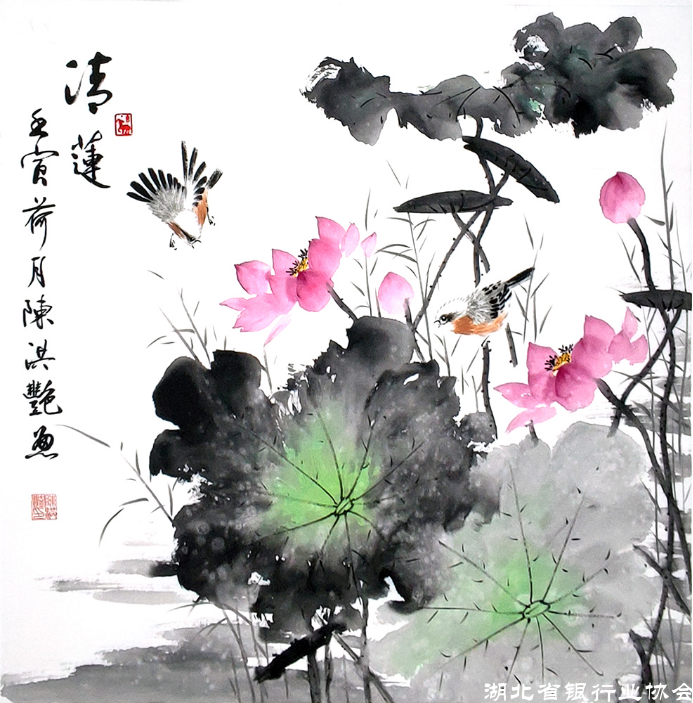 清蓮
壬寅荷月陳洪艷畫
湖北省银行业协会